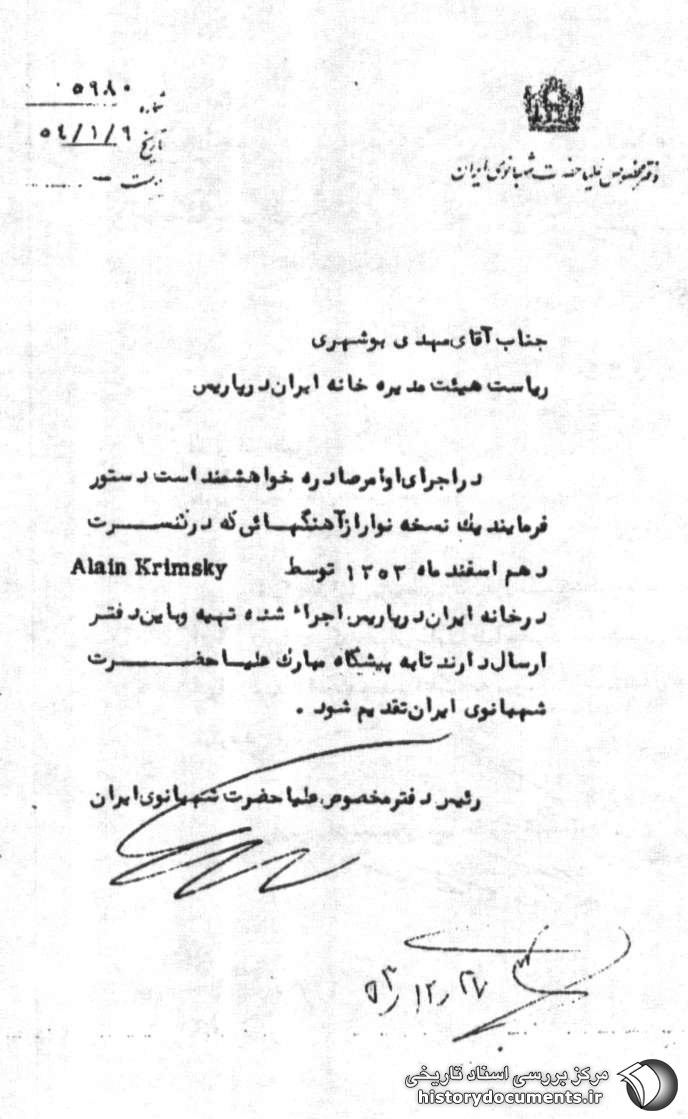 شماره ۵۹۸۰
تاریخ ۵۴/۱/۹
پیوست —
دفتر مخصوص علیا حضرت شهبانوی ایران
جناب آقای مهدی بوشهری
ریاست هیئت مدیره خانه ایران در پاریس
در اجرای اوامر صادره خواهشمند است دستور
فرمایند یک نسخه نوار از آهنگهائی که در کنسرت
دهم اسفند ماه ۱۳۵۳ توسط Alain Krimsky
در خانه ایران در پاریس اجراء شده تهیه و باین دفتر
ارسال دارند تا به پیشگاه مبارک علیا حضرت
شهبانوی ایران تقدیم شود .
رئیس دفتر مخصوص علیا حضرت شهبانوی ایران
۵۳/۱۲/۲۷
مرکز بررسی اسناد تاریخی
historydocuments.ir